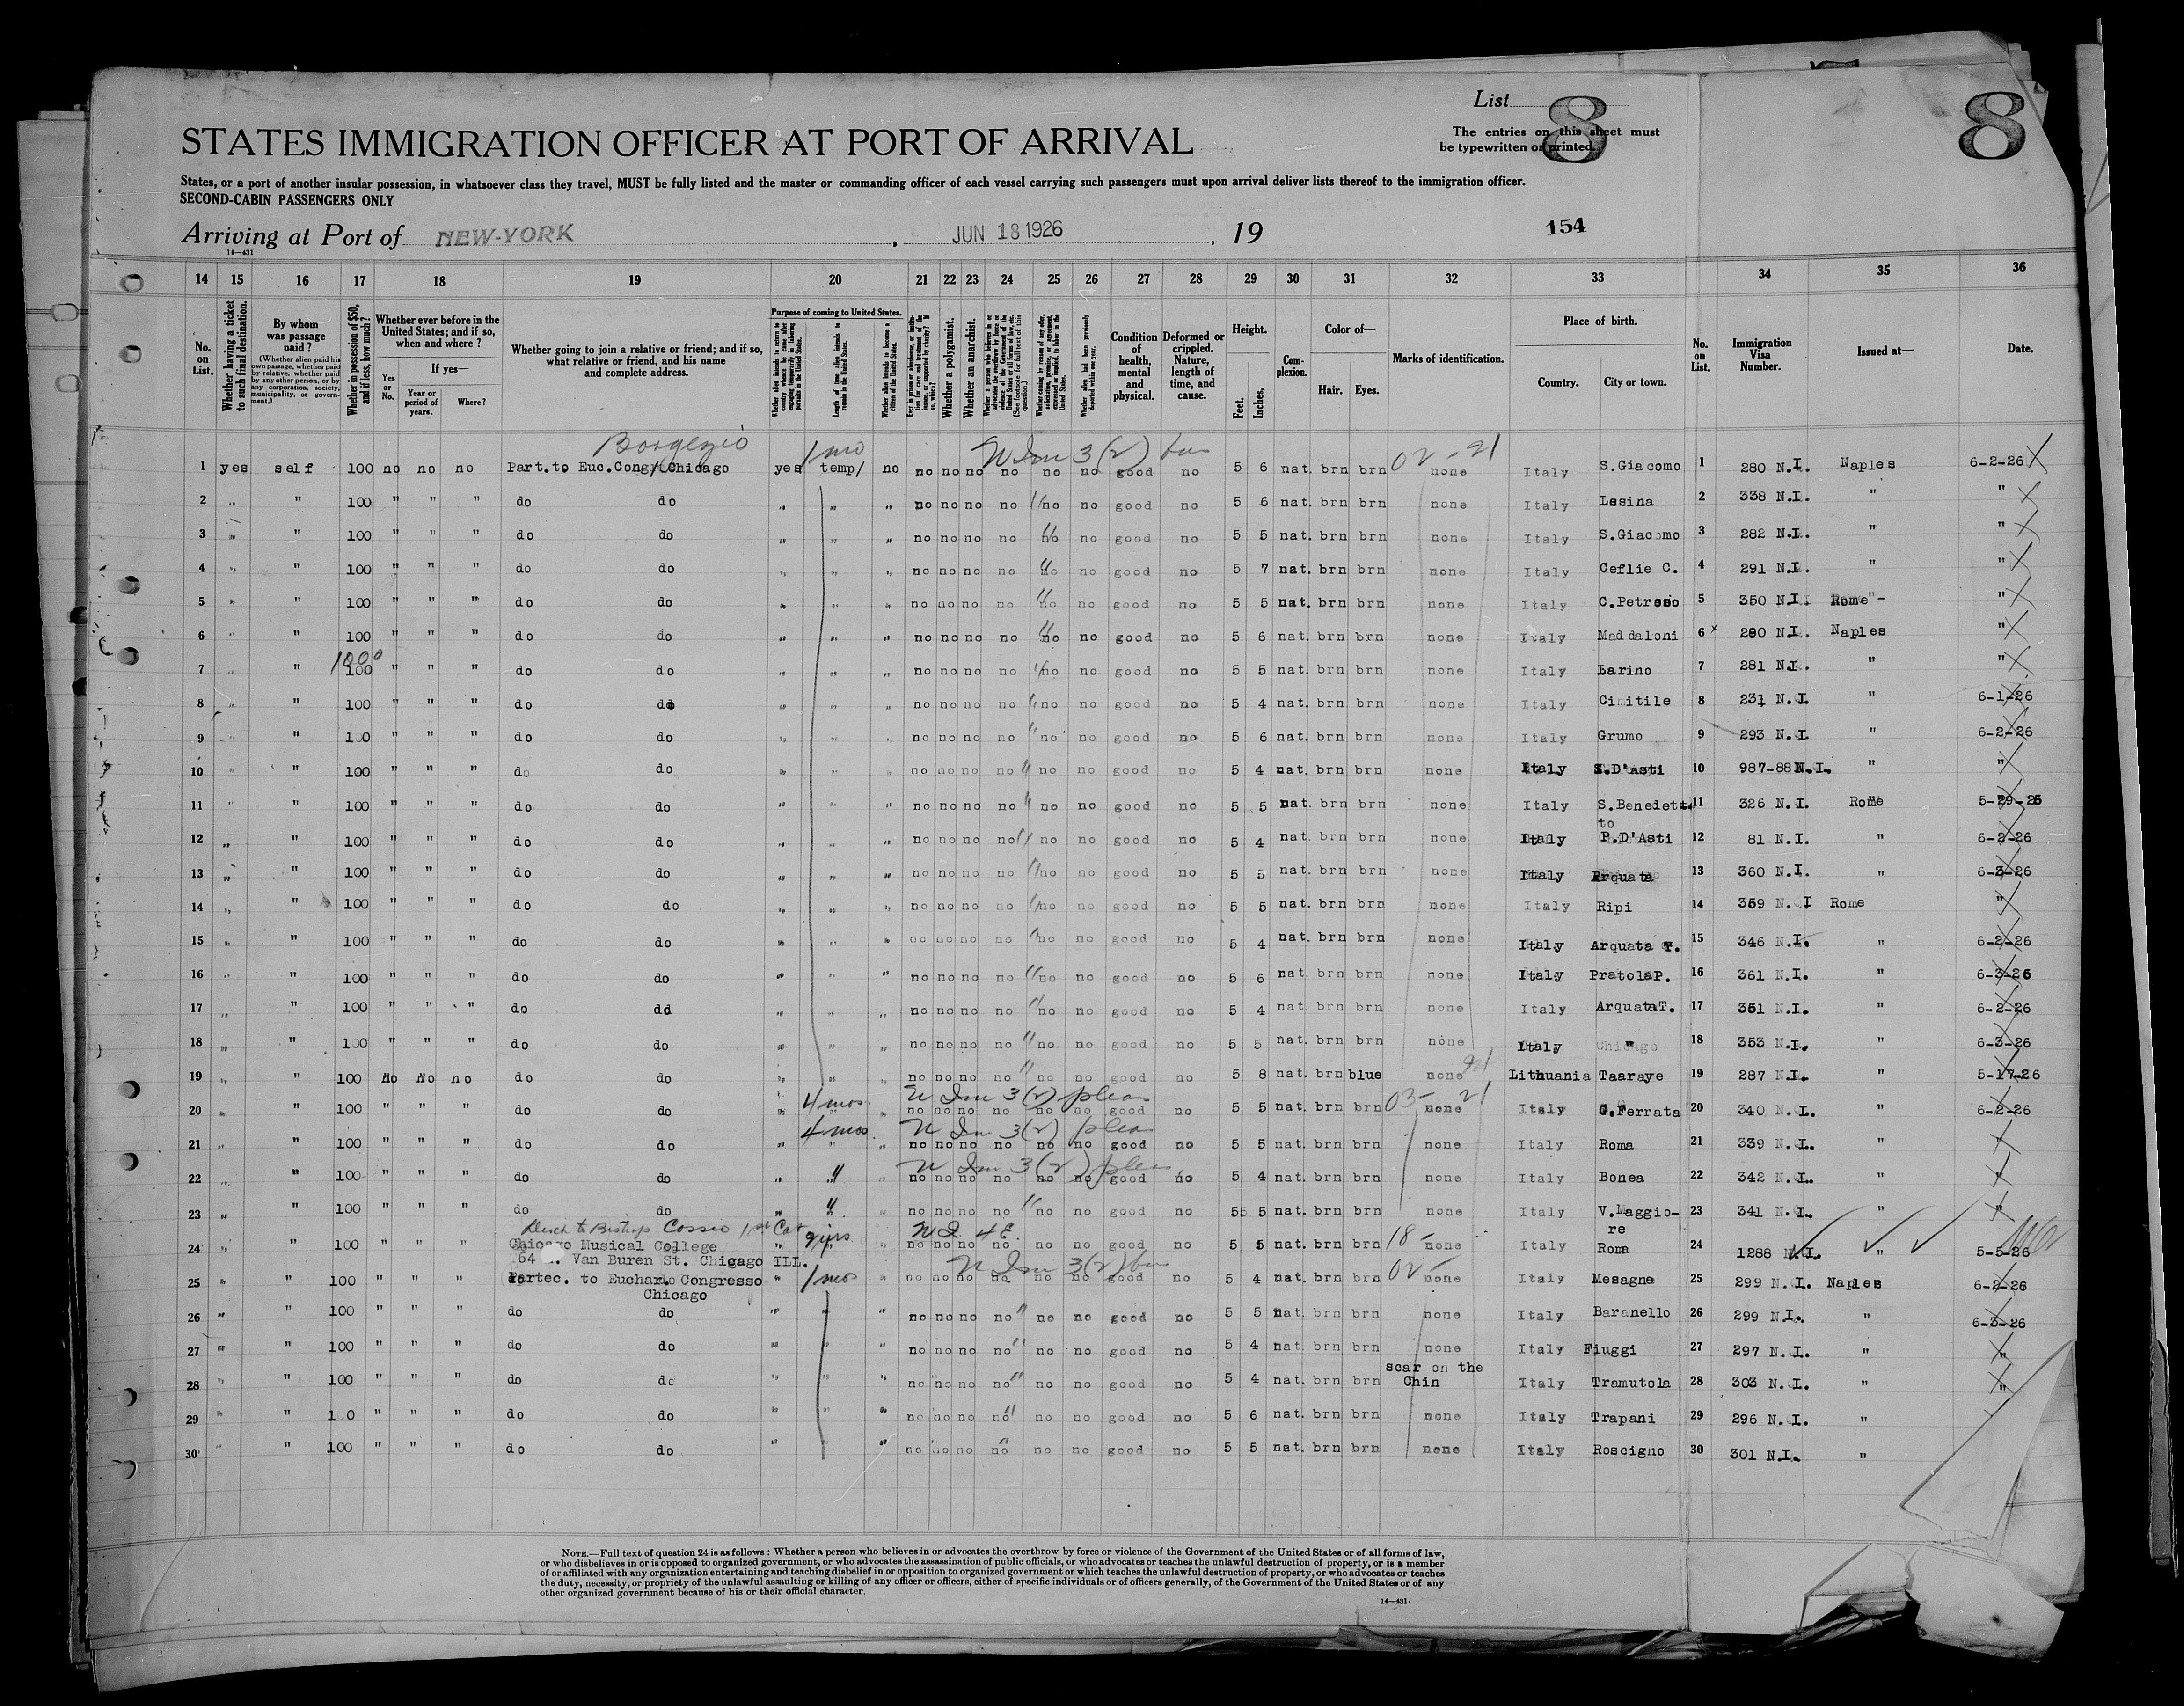 List
8
8
The entries on this sheet must
be typewritten or printed.
STATES IMMIGRATION OFFICER AT PORT OF ARRIVAL
States, or a port of another insular possession, in whatsoever class they travel, MUST be fully listed and the master or commanding officer of each vessel carrying such passengers must upon arrival deliver lists thereof to the immigration officer.
SECOND-CABIN PASSENGERS ONLY
Arriving at Port of NEW-YORK , JUN 18 1926 , 19 154
14—431
14 15 16 17 18 19 20 21 22 23 24 25 26 27 28 29 30 31 32 33 34 35 36
No. on List.
Whether having a ticket to such final destination.
By whom was passage paid?
(Whether alien paid his own passage, whether paid by relative, whether paid by any other person, or by any corporation, society, municipality, or government.)
Whether in possession of $50, and if less, how much?
Whether ever before in the United States; and if so, when and where?
Yes or No.
If yes—
Year or period of years.
Where?
Whether going to join a relative or friend; and if so, what relative or friend, and his name and complete address.
Purpose of coming to United States.
Length of time alien intends to remain in the United States.
Whether alien intends to become a citizen of the United States.
Whether a polygamist.
Whether an anarchist.
Condition of health, mental and physical.
Deformed or crippled. Nature, length of time, and cause.
Height.
Feet.
Inches.
Complexion.
Color of—
Hair.
Eyes.
Marks of identification.
Place of birth.
Country.
City or town.
No. on List.
Immigration Visa Number.
Issued at—
Date.
Borgezio 1 mo N Im 3 (2) bus 02-21
1 yes self 100 no no no Part.to Euc.Cong/Chicago yes temp/ no no no no no no no good no 5 6 nat. brn brn none Italy S.Giacomo 1 280 N.I. Naples 6-2-26
2 " " 100 " " " do do " " " no no no no no no good no 5 6 nat. brn brn none Italy Lesina 2 338 N.I. " "
3 " " 100 " " " do do " " " no no no no no no good no 5 5 nat. brn brn none Italy S.Giacomo 3 282 N.I. " "
4 " " 100 " " " do do " " " no no no no no no good no 5 7 nat. brn brn none Italy Ceflie C. 4 291 N.I. " "
5 " " 100 " " " do do " " " no no no no no no good no 5 5 nat. brn brn none Italy C.Petroso 5 350 N.I. Rome "
6 " " 100 " " " do do " " " no no no no no no good no 5 6 nat. brn brn none Italy Maddaloni 6 280 N.I. Naples "
1000
7 " " 100 " " " do do " " " no no no no no no good no 5 5 nat. brn brn none Italy Larino 7 281 N.I. " "
8 " " 100 " " " do do " " " no no no no no no good no 5 4 nat. brn brn none Italy Cimitile 8 231 N.I. " 6-1-26
9 " " 100 " " " do do " " " no no no no no no good no 5 6 nat. brn brn none Italy Grumo 9 293 N.I. " 6-2-26
10 " " 100 " " " do do " " " no no no no no no good no 5 4 nat. brn brn none Italy D'asti 10 987-88 N.I. " "
11 " " 100 " " " do do " " " no no no no no no good no 5 5 nat. brn brn none Italy S.Benedetto 11 326 N.I. Rome 5-29-26
to
12 " " 100 " " " do do " " " no no no no no no good no 5 4 nat. brn brn none Italy P.D'Asti 12 81 N.I. " 6-2-26
13 " " 100 " " " do do " " " no no no no no no good no 5 5 nat. brn brn none Italy Arquata 13 360 N.I. " 6-3-26
14 " " 100 " " " do do " " " no no no no no no good no 5 5 nat. brn brn none Italy Ripi 14 359 N.I Rome "
15 " " 100 " " " do do " " " no no no no no no good no 5 4 nat. brn brn none Italy Arquata T. 15 346 N.I. " 6-2-26
16 " " 100 " " " do do " " " no no no no no no good no 5 6 nat. brn brn none Italy PratolaP. 16 361 N.I. " 6-3-26
17 " " 100 " " " do dd " " " no no no no no no good no 5 4 nat. brn brn none Italy ArquataT. 17 351 N.I. " 6-2-26
18 " " 100 " " " do do " " " no no no no no no good no 5 5 nat. brn brn none Italy " 18 353 N.I. " 6-3-26
19 " " 100 No No no do do " " " no no no no no no good no 5 8 nat. brn blue none Lithuania Taaraye 19 287 N.I. " 5-17-26
4 mos N Im 3 (2) pleas 03- 21
20 " " 100 " " " do do " " " no no no no no no good no 5 5 nat. brn brn none Italy G.Ferrata 20 340 N.I. " 6-2-26
4 mos. N Im 3(2) pleas
21 " " 100 " " " do do " " " no no no no no no good no 5 5 nat. brn brn none Italy Roma 21 339 N.I. " "
N Im 3 (2) pleas
22 " " 100 " " " do do " " " no no no no no no good no 5 4 nat. brn brn none Italy Bonea 22 342 N.I. " "
23 " " 100 " " " do do " " " no no no no no no good no 5 5 nat. brn brn none Italy V.Maggio- 23 341 N.I. " "
re
to Bishop Cossio 1st Cab 2 yrs N I 4 E. 18-
24 " " 100 " " " Chicago Musical College " " no no no no no no good no 5 5 nat. brn brn none Italy Roma 24 1288 N.I. " 5-5-26
64 Van Buren St. Chicago ILL.
1 mos N Im 3 (2) bus 02-
25 " " 100 " " " Partec. to Euchar. Congresso " " no no no no no no good no 5 4 nat. brn brn none Italy Mesagne 25 299 N.I. Naples 6-2-26
Chicago
26 " " 100 " " " do do " " " no no no no no no good no 5 5 nat. brn brn none Italy Baranello 26 299 N.I. " 6-3-26
27 " " 100 " " " do do " " " no no no no no no good no 5 4 nat. brn brn none Italy Fiuggi 27 297 N.I. " "
28 " " 100 " " " do do " " " no no no no no no good no 5 4 nat. brn brn scar on the Chin Italy Tramutola 28 303 N.I. " "
29 " " 100 " " " do do " " " no no no no no no good no 5 6 nat. brn brn none Italy Trapani 29 296 N.I. "
30 " " 100 " " " do do " " " no no no no no no good no 5 5 nat. brn brn none Italy Roscigno 30 301 N.I. "
NOTE.—Full text of question 24 is as follows: Whether a person who believes in or advocates the overthrow by force or violence of the Government of the United States or of all forms of law,
or who disbelieves in or is opposed to organized government, or who advocates the assassination of public officials, or who advocates or teaches the unlawful destruction of property, or is a member
of or affiliated with any organization entertaining and teaching disbelief in or opposition to organized government or which teaches the unlawful destruction of property, or who advocates or teaches
the duty, necessity, or propriety of the unlawful assaulting or killing of any officer or officers, either of specific individuals or of officers generally, of the Government of the United States or of any
other organized government because of his or their official character.
14—431